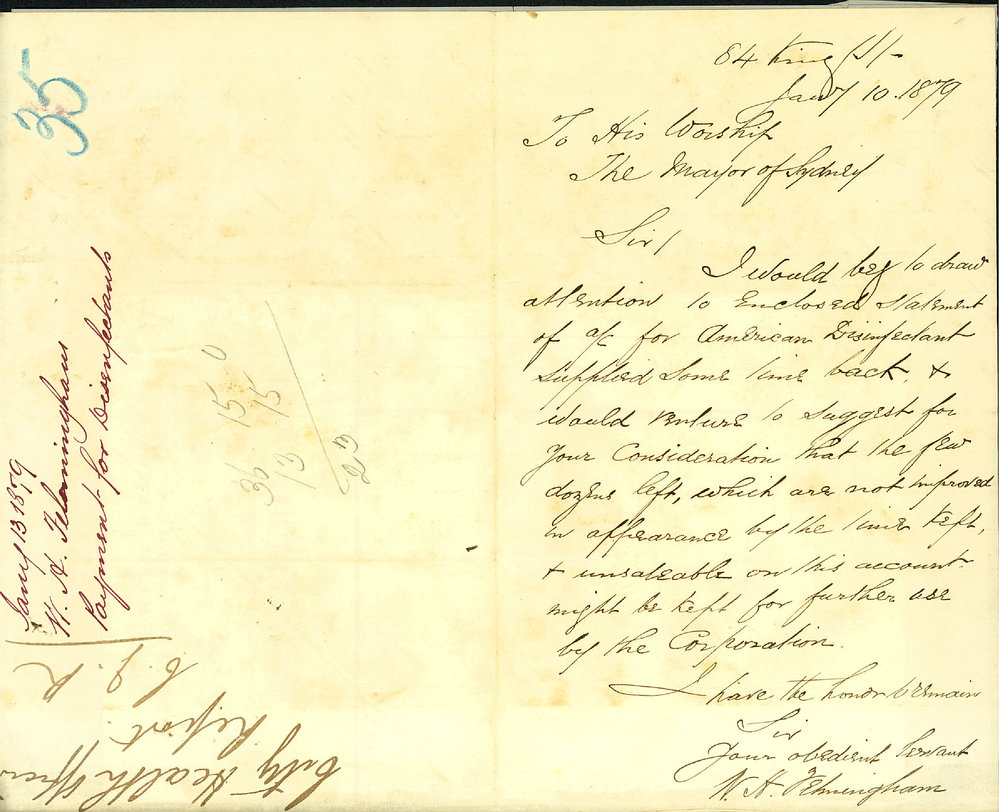 84 King St
Jany 10. 1879
To His Worship
The Mayor of Sydney
Sir/
I would beg to draw
attention to Enclosed statement
of a/c for American Disinfectant
supplied some time back, &
would venture to suggest for
your Consideration that the few
dozens left, which are not improved
in appearance by the time kept,
& unsaleable on this account.
might be kept for further use
by the Corporation.
I have the honor to remain
Sir
Your obedient Servant
W. H. Felmingham
35
Jany 13 1879
W. H. Felmingham
Payment for Disinfectants
City Health Officer
Report
36. 15 0
13 15
23